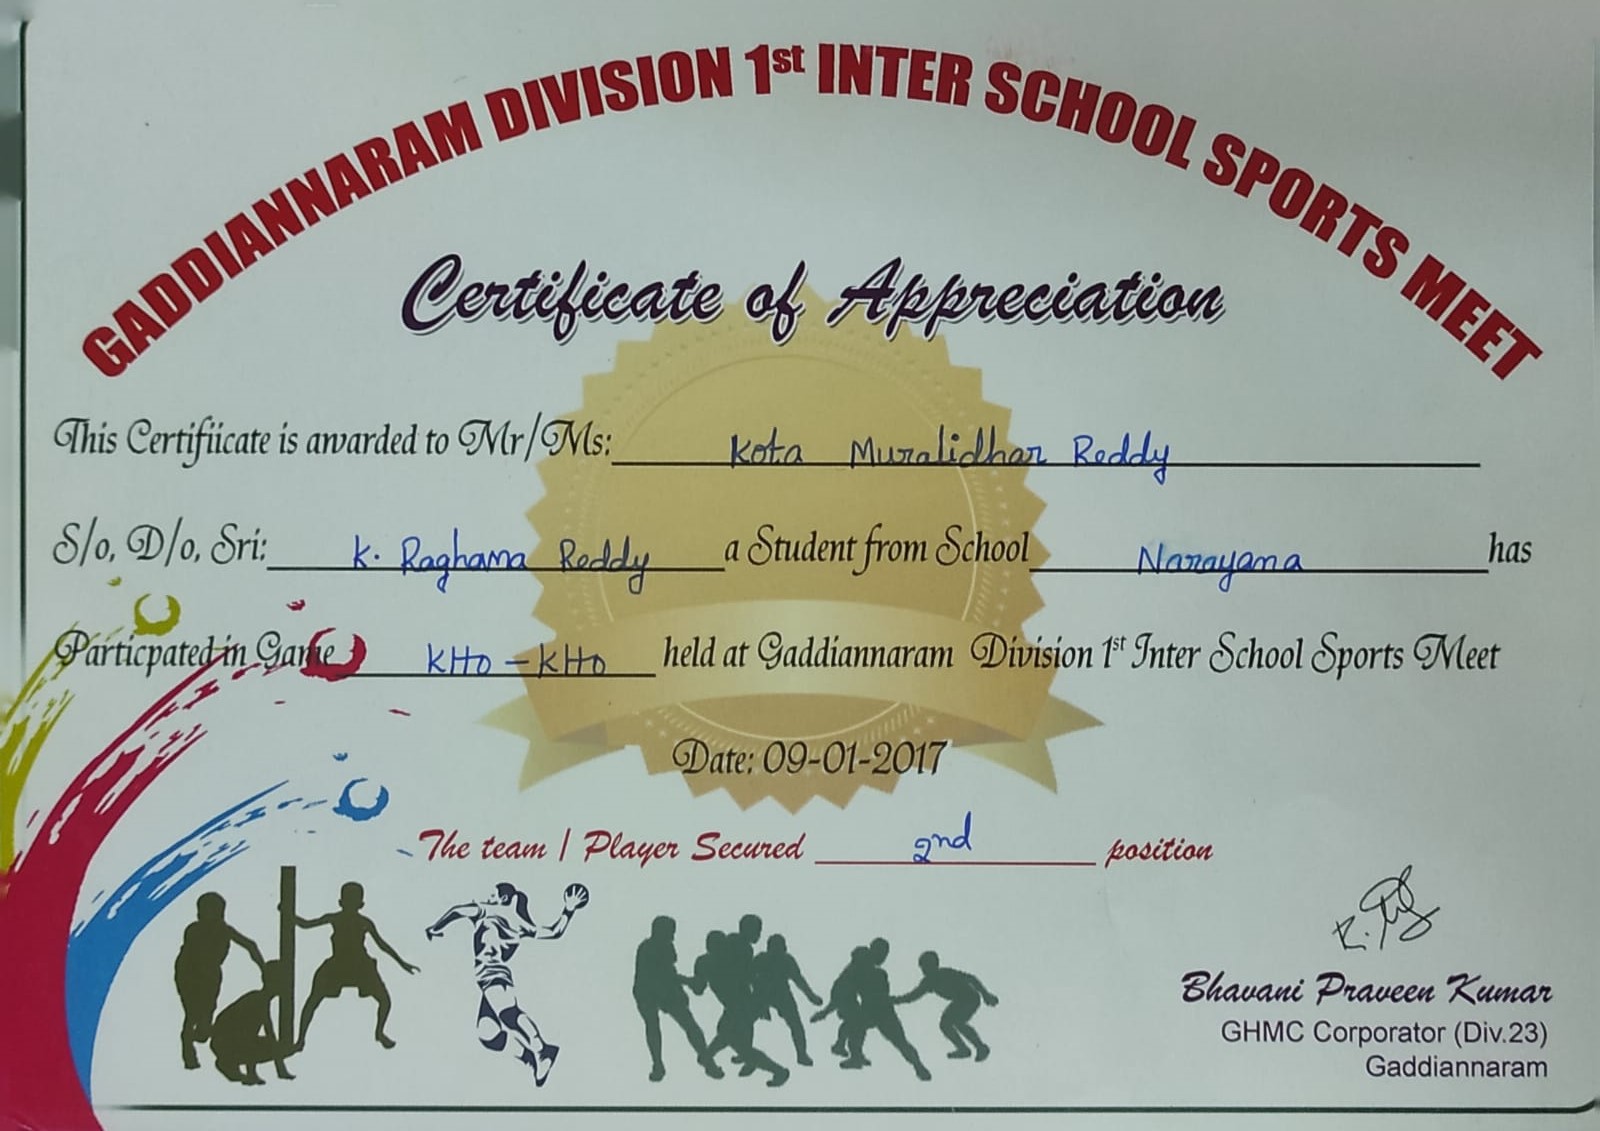 GADDIANNARAM DIVISION 1st INTER SCHOOL SPORTS MEET
Certificate of Appreciation
This Certifiicate is awarded to Mr/Ms: Kota Muralidhar Reddy
S/o, D/o, Sri: K. Raghama Reddy a Student from School Narayana has
Particpated in Game KHo - KHo held at Gaddiannaram Division 1st Inter School Sports Meet
Date: 09-01-2017
The team / Player Secured 2nd position
Bhavani Praveen Kumar
GHMC Corporator (Div.23)
Gaddiannaram